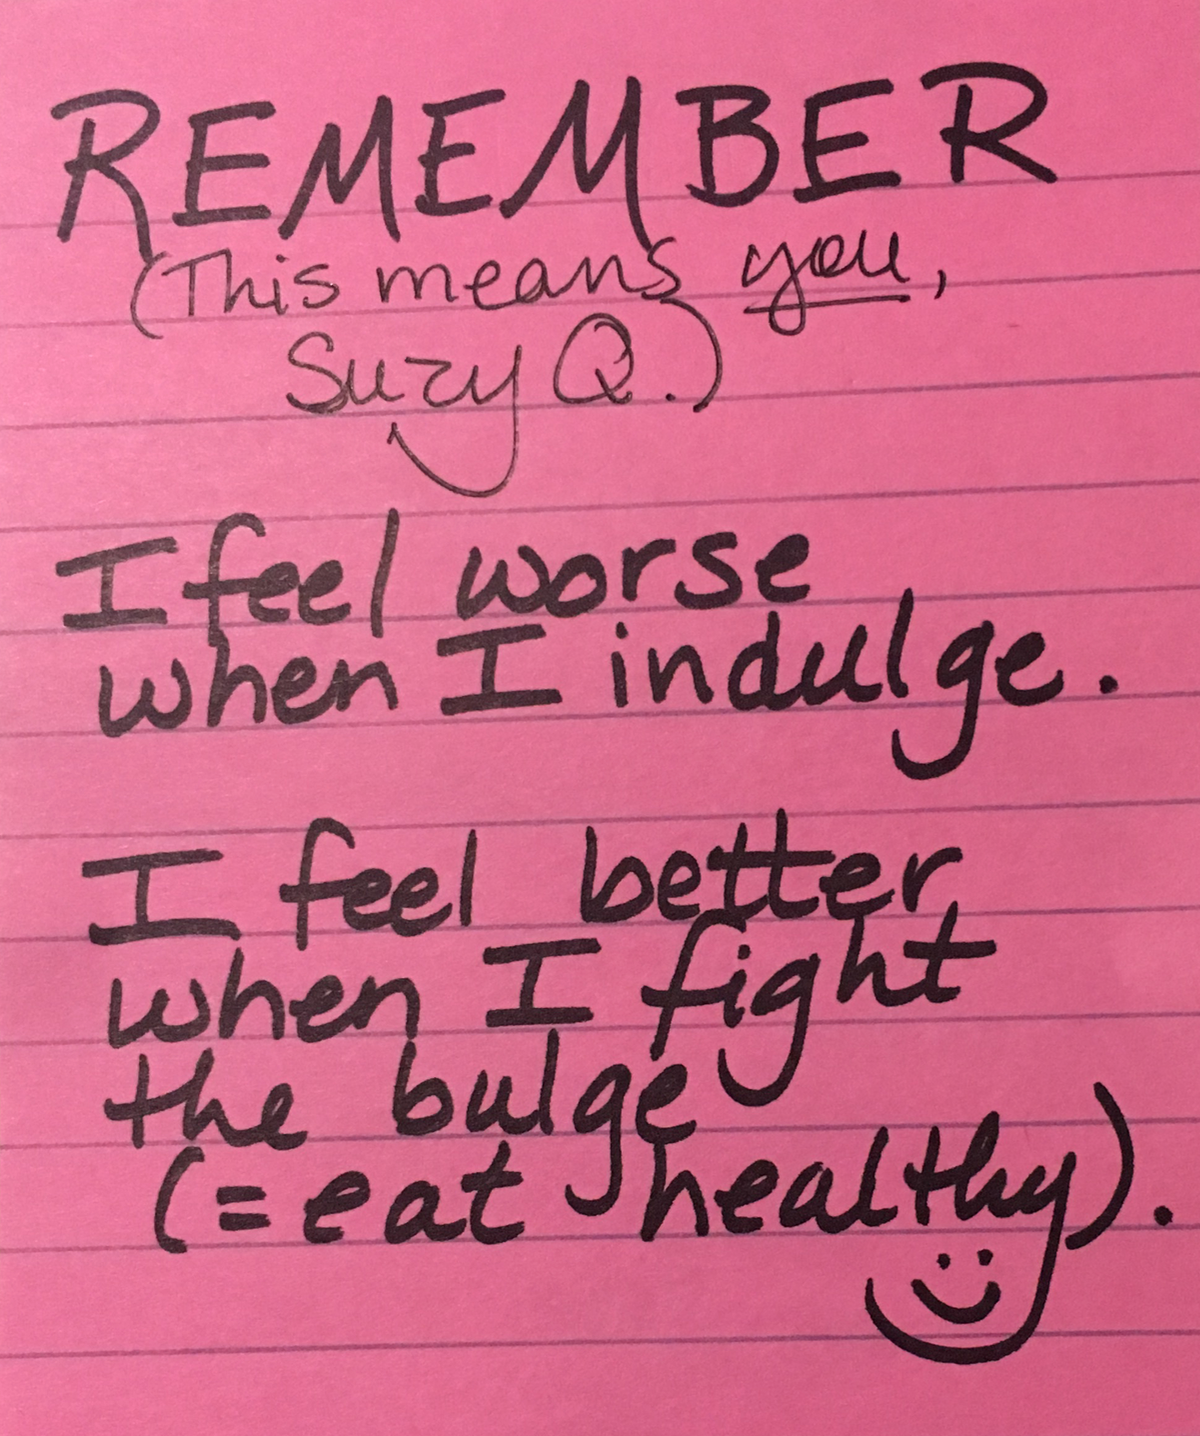 REMEMBER
(This means you,
Suzy Q.)
I feel worse
when I indulge.
I feel better
when I fight
the bulge
(= eat healthy).